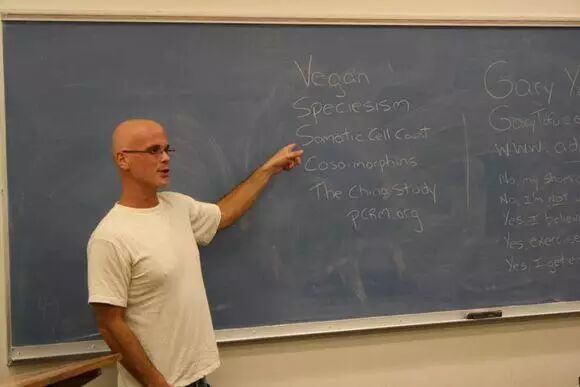 Vegan
Speciesism
Somatic Cell Count
Caso-morphins
The China Study
pcrm.org
Gary
www.
No, my shoes
No, I'm not
Yes, I
Yes, exercise
Yes, I get